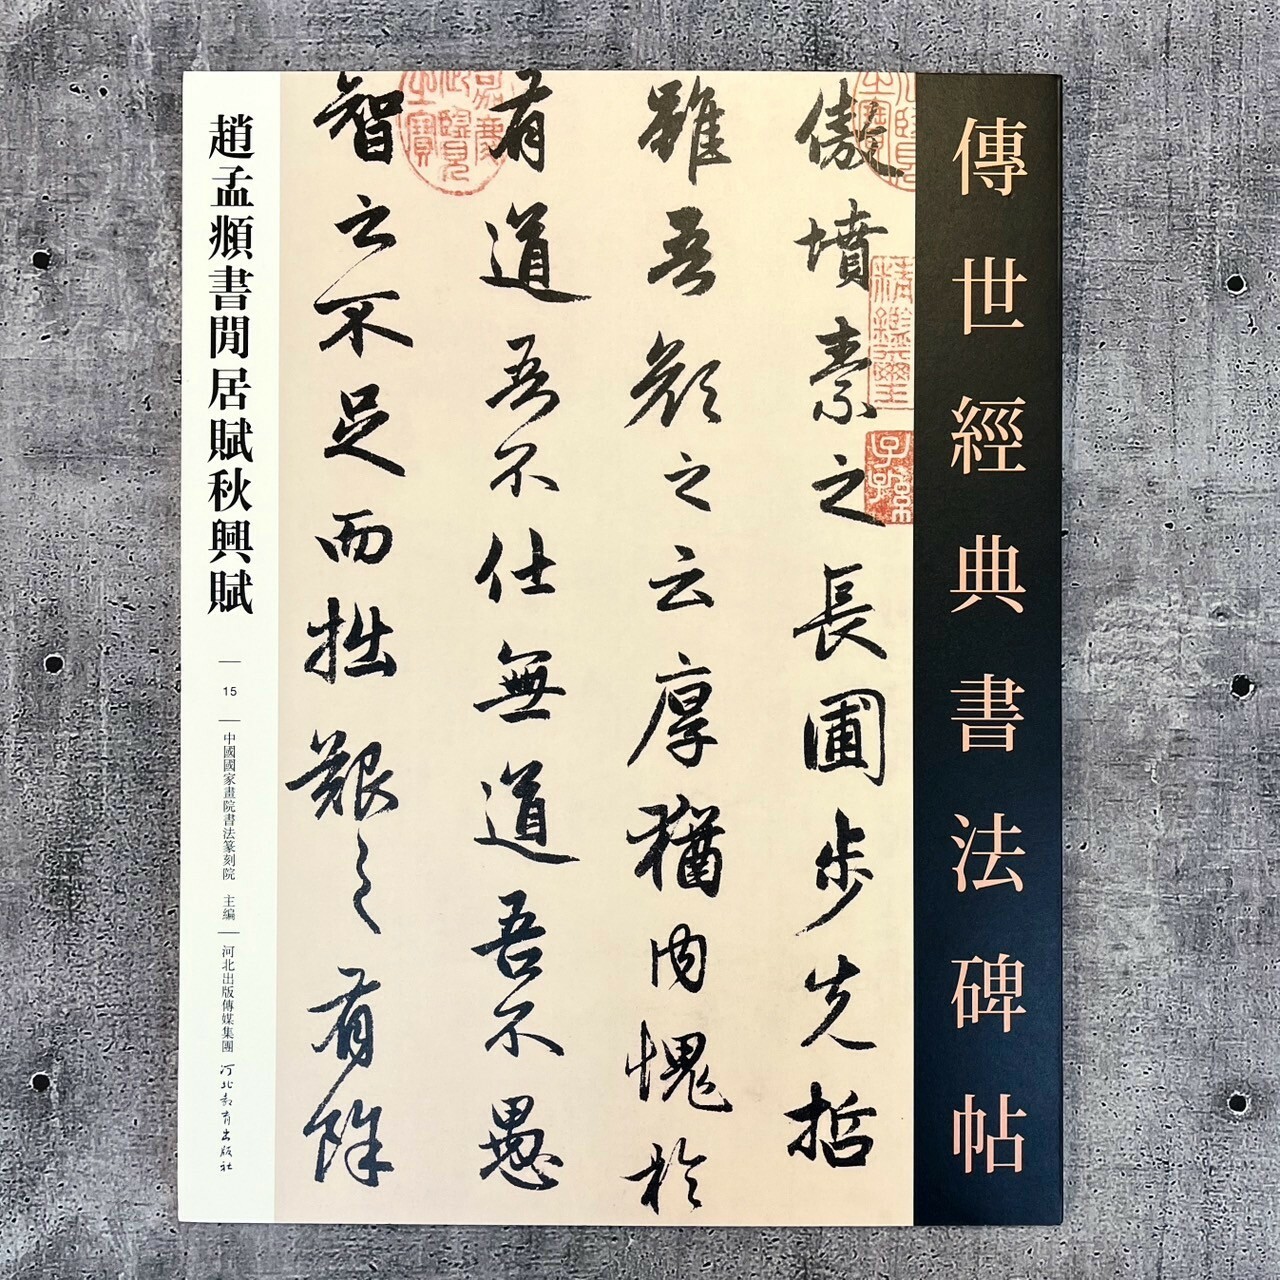 傳世經典書法碑帖
傲墳素之長圃步先哲
雖吾顏之云厚猶內愧於
有道吾不仕無道吾不愚
智之不足而拙艱之有餘
嘉慶
御覽
之寶
精鑑璽
子孫
趙孟頫書閒居賦秋興賦
15
中國國家畫院書法篆刻院 主編
河北出版傳媒集團
河北教育出版社